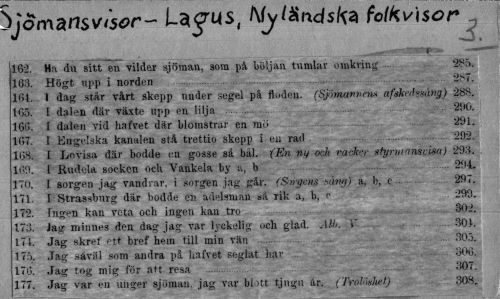 Sjömansvisor - Lagus, Nyländska folkvisor
3.
162. Ha du sitt en vilder sjöman, som på böljan tumlar omkring 285.
163. Högt upp i norden 287.
164. I dag står vårt skepp under segel på floden. (Sjömannens afskedssång) 288.
165. I dalen där växte upp en lilja 290.
166. I dalen vid hafvet där blomstrar en mö 291.
167. I Engelska kanalen stå trettio skepp i en rad 292.
168. I Lovisa där bodde en gosse så bål. (En ny och vacker styrmansvisa) 293.
169. I Rudela socken och Vankela by a, b 294.
170. I sorgen jag vandrar, i sorgen jag går. (Sorgens sång) a, b, c 297.
171. I Strassburg där bodde en adelsman så rik a, b, c 299.
172. Ingen kan veta och ingen kan tro 302.
173. Jag minnes den dag jag var lyckelig och glad. Alb. V 304.
174. Jag skref ett bref hem till min vän 305.
175. Jag såväl som andra på hafvet seglat har 306.
176. Jag tog mig för att resa 307.
177. Jag var en unger sjöman, jag var blott tjugu år. (Trolöshet) 308.